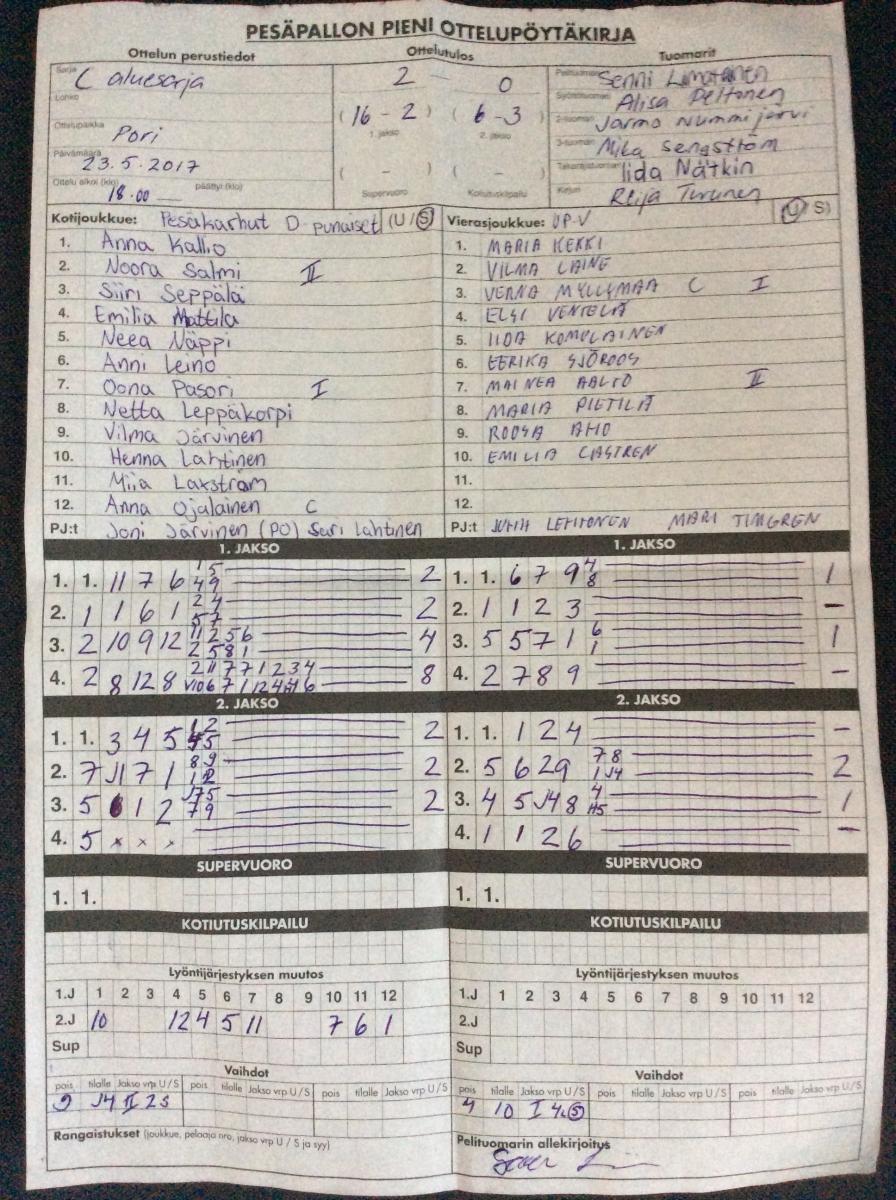 PESÄPALLON PIENI OTTELUPÖYTÄKIRJA
Ottelun perustiedot Ottelutulos Tuomarit
Sarja C aluesarja 2 - 0 Pelituomari Senni
Lohko Syöttötuomari Alisa Peltonen
Ottelupaikka Pori (16 - 2) (6 - 3) 2-tuomari Jarmo Nummijärvi
1. jakso 2. jakso 3-tuomari Mika
Päivämäärä 23.5.2017 Takarajatuomari Iida Nätkin
Ottelu alkoi (klo) 18.00 päättyi (klo) ( - ) ( - ) Kirjuri Reija Turunen
Supervuoro Kotiutuskilpailu
Kotijoukkue: Pesäkarhut D punaiset (U/S) Vierasjoukkue: UP-V (U/S)
1. Anna Kallio 1. MARIA KEKKI
2. Noora Salmi II 2. VILMA LAINE
3. Siiri Seppälä 3. VERNA MYLLYMAA C I
4. Emilia Mattila 4. ELSI VENTELÄ
5. Neea Näppi 5. IIDA KOMULAINEN
6. Anni Leino 6. EERIKA SJÖROOS
7. Oona Pasori I 7. MAINEA AALTO II
8. Netta Leppäkorpi 8. MARIA PIETILÄ
9. Vilma Järvinen 9. ROOSA AHO
10. Henna Lahtinen 10. EMILIA CASTREN
11. Miia Laxström 11.
12. Anna Ojalainen C 12.
PJ:t Joni Järvinen (PO) Sari Lahtinen PJ:t LEHTONEN MARI TIMGREN
1. JAKSO 1. JAKSO
1. 1. 11 7 6 1 5 4 9 2 1. 1. 6 7 9 4 8 1
2. 1 1 6 1 2 4 5 7 2 2. 1 1 2 3 -
3. 2 10 9 12 11 2 5 6 2 5 8 1 4 3. 5 5 7 1 6 1 1
4. 2 8 12 8 2 11 7 7 1 2 3 4 8 4. 2 7 8 9 -
2. JAKSO 2. JAKSO
1. 1. 3 4 5 1 2 5 2 1. 1. 1 2 4 -
2. 7 J1 7 1 8 9 1 2 2 2. 5 6 2 9 7 8 1 J4 2
3. 5 1 2 J7 5 7 9 2 3. 4 5 J4 8 4 1
4. 5 x x x 4. 1 1 2 6 -
SUPERVUORO SUPERVUORO
1. 1. 1. 1.
KOTIUTUSKILPAILU KOTIUTUSKILPAILU
Lyöntijärjestyksen muutos Lyöntijärjestyksen muutos
1.J 1 2 3 4 5 6 7 8 9 10 11 12 1.J 1 2 3 4 5 6 7 8 9 10 11 12
2.J 10 12 4 5 11 7 6 1 2.J
Sup Sup
Vaihdot Vaihdot
pois tilalle Jakso vrp U/S pois tilalle Jakso vrp U/S pois tilalle Jakso vrp U/S pois tilalle Jakso vrp U/S pois tilalle Jakso vrp U/S pois tilalle Jakso vrp U/S
9 J4 II 2 S 4 10 I 4. S
Rangaistukset (joukkue, pelaaja nro, jakso vrp U / S ja syy) Pelituomarin allekirjoitus